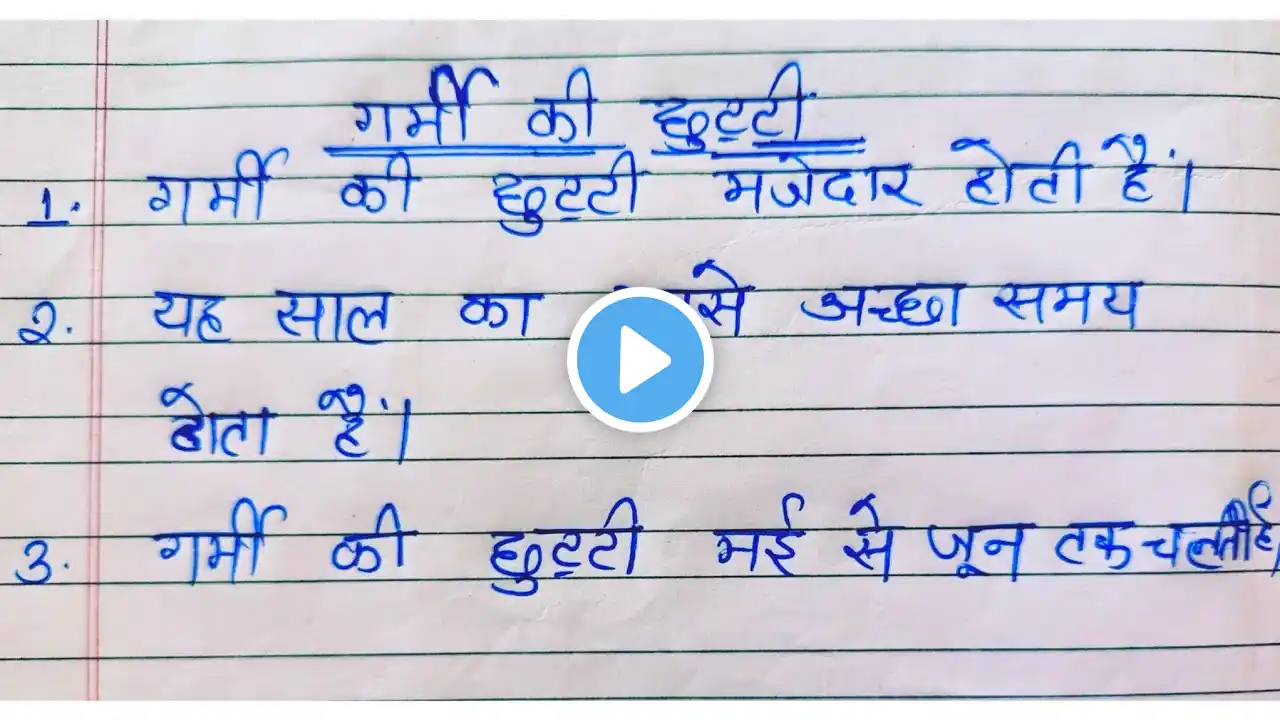 गर्मी की छुट्टी
1. गर्मी की छुट्टी मजेदार होती हैं।
२. यह साल का से अच्छा समय
होता हैं।
3. गर्मी की छुट्टी मई से जून तक चलती है।